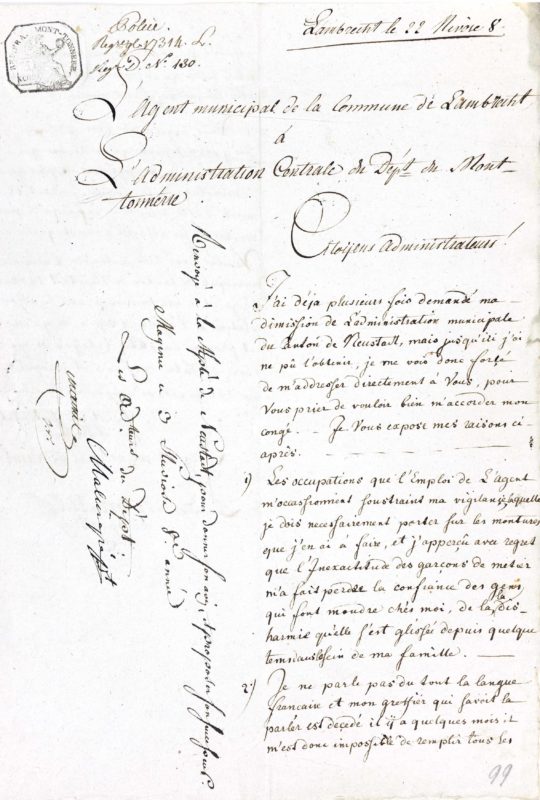 Police.
Reg. gl. 17314. L.
Reg. D. N.º 130.
Lambrecht le 22 Nivôse 8.
L'Agent municipal de la Commune de Lambrecht
à
L'Administration Centrale du Dépt. du Mont-
tonnérre
Citoyens administrateurs!
J'ai déja plusieurs fois demandé ma
dimission de L'administration municipale
du Canton de Neustatt, mais jusqu'ici j'ai
ne pû l'obtenir, je me vois donc forcé
de m'addresser directement à Vous, pour
Vous prier de vouloir bien m'accorder mon
congé. Je Vous expose mes raisons ci-
après.
1) Les occupations que l'Emploi de L'agent
m'occassionnent soustraint ma vigilance laquelle
je dois necessairement porter sur les montures
que j'en ai à faire, et j'apperçu avec regret
que l'Inexactitude des garçons de metier
m'a fait perdre la confiance des gens
qui font moudre chés moi, de la dis-
harmie qu'elle s'est glissée depuis quelque
tems dans le sein de ma famille.
2) Je ne parle pas du tout la langue
francaise et mon greffier qui savoit la
parler est decedé il y a quelques mois il
m'est donc impossible de remplir tous les
99
Renvoyé à la Mple. de Neustadt pour donner son avis & proposer son successeur.
Mayence ce 3 Pluviose 8.e année
Les Adteurs du Dépt.